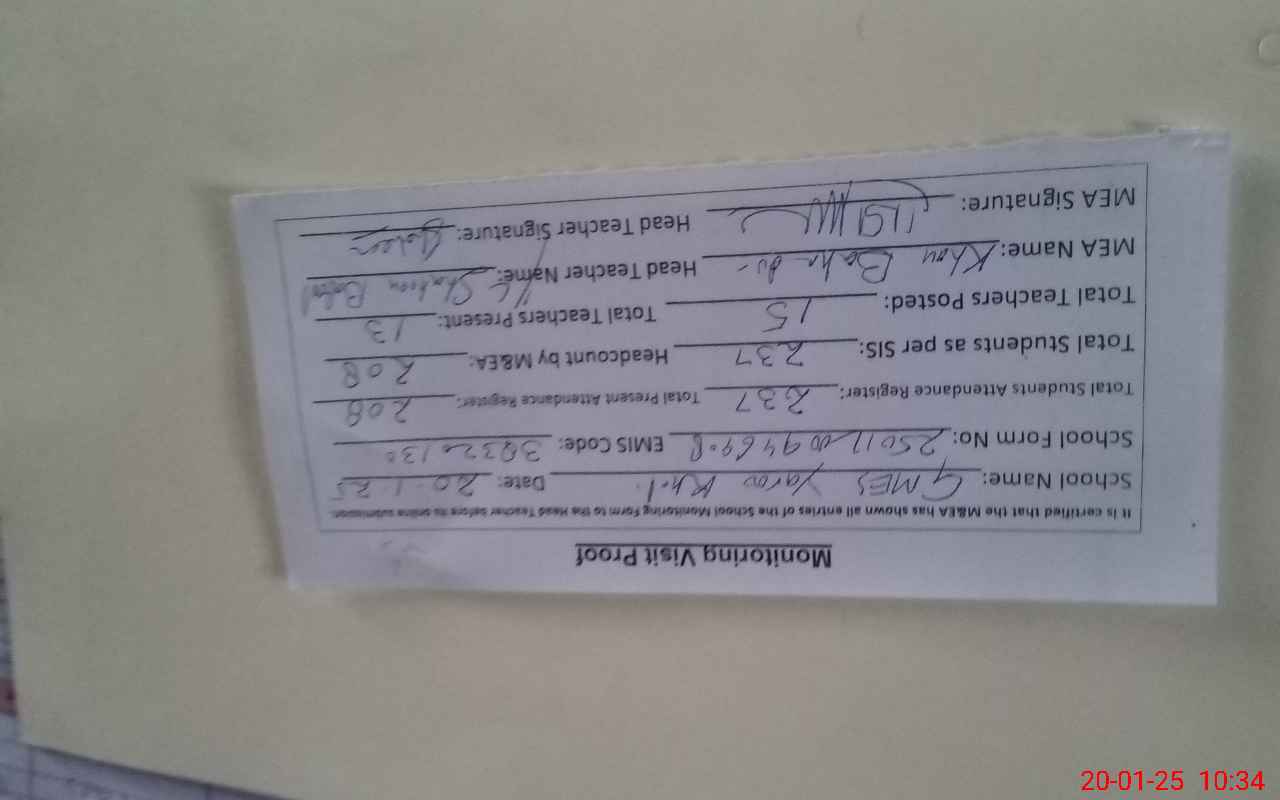 Monitoring Visit Proof
It is certified that the M&EA has shown all entries of the School Monitoring Form to the Head Teacher before its online submission.
School Name: GMES Date: 20-1-25
School Form No: EMIS Code:
Total Students Attendance Register: 237 Total Present Attendance Register: 208
Total Students as per SIS: 237 Headcount by M&EA: 208
Total Teachers Posted: 15 Total Teachers Present: 13
MEA Name: Khan Head Teacher Name:
MEA Signature: Head Teacher Signature:
20-01-25 10:34